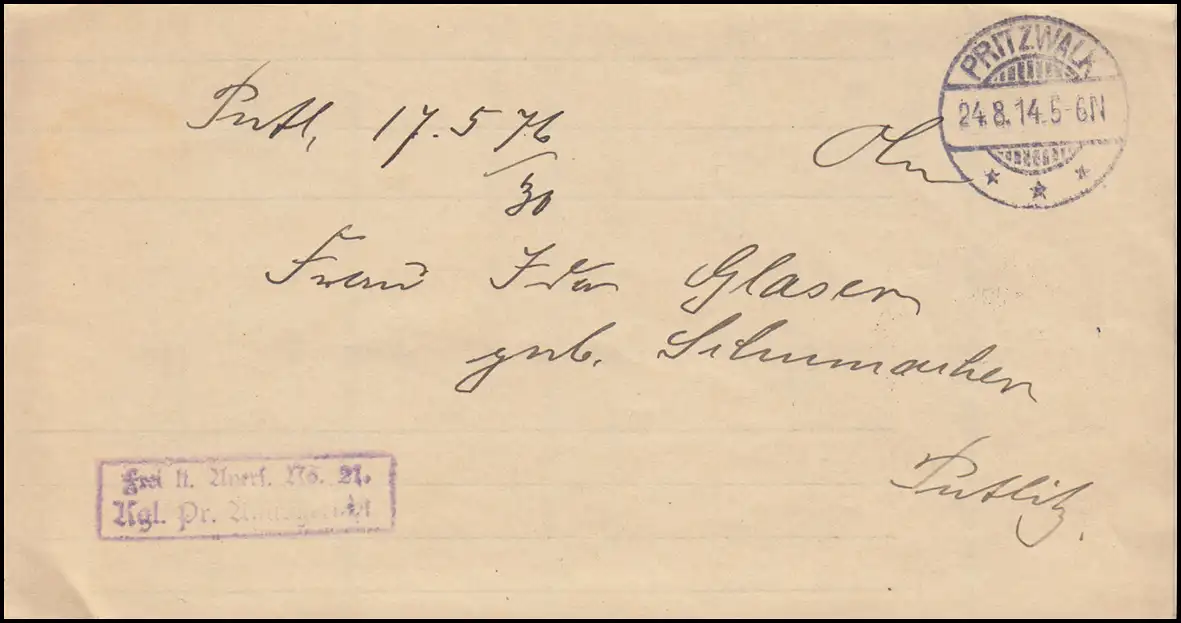 PRITZWALK
24.8.14.5-6N
Putl. 17.5.76
30
An
Frau Ida Glaser
geb. Schumacher
Putlitz.
Frei lt. Avers. No. 21.
Kgl. Pr. Amtsgericht